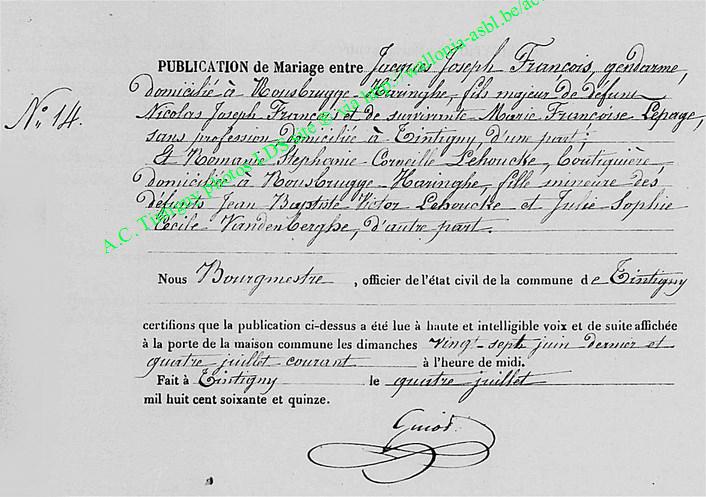 PUBLICATION de Mariage entre Jacques Joseph François, gendarme,
domiciliée à Rousbrugge-Haringhe, fils majeur de défunt
N° 14.
Nicolas Joseph François et de survivante Marie Françoise Lepage,
sans profession domiciliée à Tintigny d'une part;
Et Romanie Stephanie Corneille Lehoucke, boutiquière
domiciliée à Rousbrugge-Haringhe, fille mineure des
défunts Jean Baptiste Victor Lehoucke et Julie Sophie
Cécile Vandenberghe, d'autre part.
Nous Bourgmestre, officier de l'état civil de la commune de Tintigny
certifions que la publication ci-dessus a été lue à haute et intelligible voix et de suite affichée
à la porte de la maison commune les dimanches vingt-sept juin dernier et
quatre juillet courant à l'heure de midi.
Fait à Tintigny le quatre juillet
mil huit cent soixante et quinze.
A.C. Tintigny photos LDS site @ via http://wallonia-asbl.be/ac